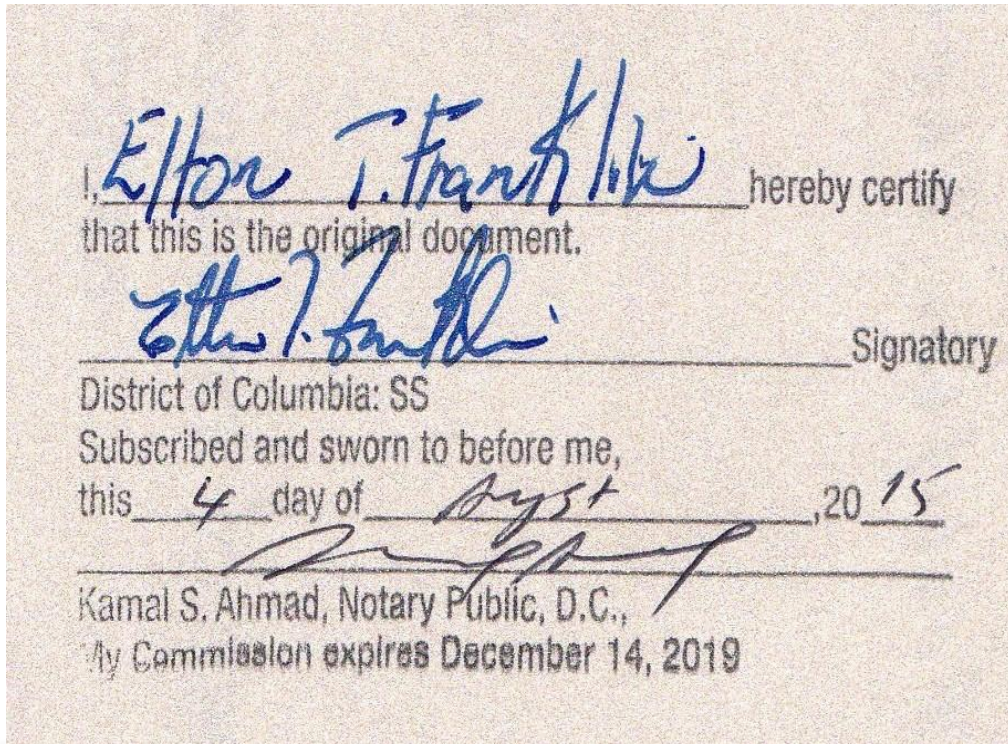 I, Elton T. Franklin hereby certify
that this is the original document.
Elton T. Franklin Signatory
District of Columbia: SS
Subscribed and sworn to before me,
this 4 day of August, 20 15
Kamal S. Ahmad, Notary Public, D.C.,
My Commission expires December 14, 2019